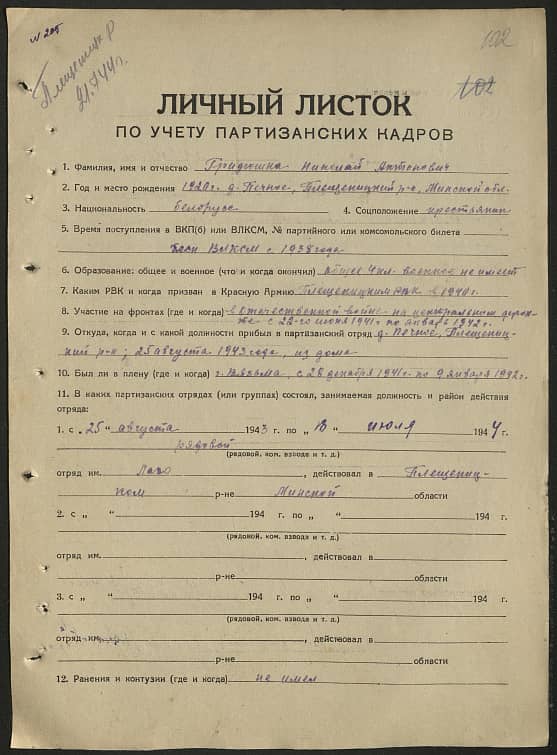 N 205
Плещеницк. р
21.7.44 г.
102
102
ЛИЧНЫЙ ЛИСТОК
ПО УЧЕТУ ПАРТИЗАНСКИХ КАДРОВ
1. Фамилия, имя и отчество Гридюшка Николай Антонович
2. Год и место рождения 1920 г. д. Печное, Плещеницкий р-н, Минской обл.
3. Национальность белорусс 4. Соцположение крестьянин
5. Время поступления в ВКП(б) или ВЛКСМ, № партийного или комсомольского билета
ВЛКСМ с 1938 года
6. Образование: общее и военное (что и когда окончил) общее 4 кл. военное не имеет
7. Каким РВК и когда призван в Красную Армию Плещеницким РВК в 1940 г.
8. Участие на фронтах (где и когда) в отечественной войне на центральном
с 22-го июня 1941 г. по январь 1942 г.
9. Откуда, когда и с какой должности прибыл в партизанский отряд д. Печное, Плещениц-
кий р-н; 25 августа 1943 года, из дома
10. Был ли в плену (где и когда) г. Вязьма, с 28 декабря 1941 г. по 9 января 1942 г.
11. В каких партизанских отрядах (или группах) состоял, занимаемая должность и район действия
отряда:
1. с „25" августа 1943 г. по „ " июля 1944 г.
рядовой
(рядовой, ком. взвода и т. д.)
отряд им. Лазо, действовал в Плещениц-
ком р-не Минской области
2. с „ " 194 г. по „ " 194 г.
(рядовой, ком. взвода и т. д.)
отряд им. , действовал в
р-не области
3. с „ " 194 г. по „ " 194 г.
(рядовой, ком. взвода и т. д.)
отряд им. , действовал в
р-не области
12. Ранения и контузии (где и когда) не имел